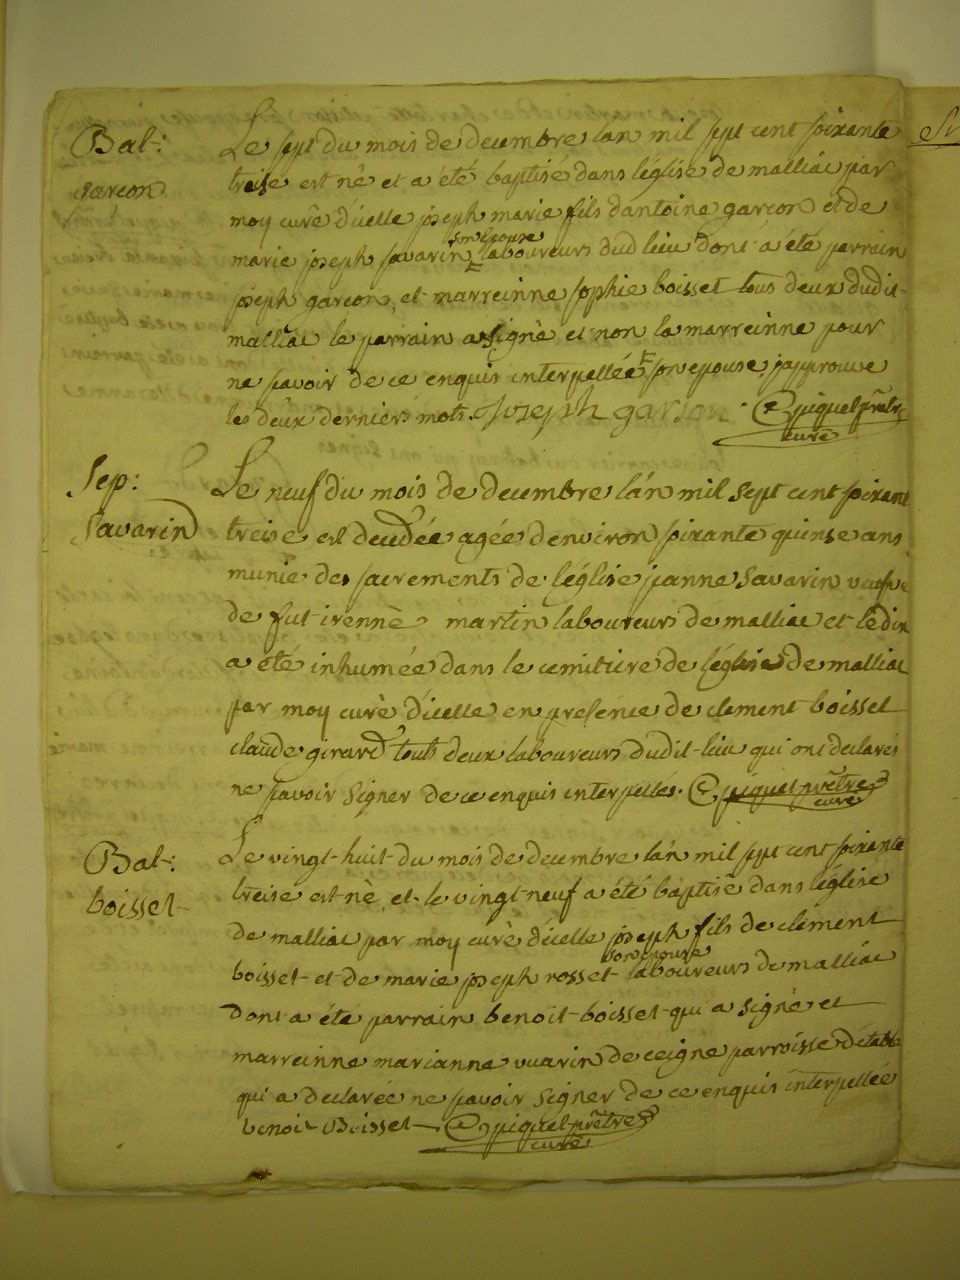 Bat:
garcon
Le sept du mois de decembre lan mil sept cent soixante
treise est né et a été baptisé dans léglise de malliac par
moy curé dicelle joseph marie fils dantoine garcon et de
son epouse
marie joseph savarin laboureurs dud lieu dont a été parrain
joseph garcon et marreinne sophie boisset tous deux dudit
malliac le parrain a signé et non la marreinne pour
ne savoir de ce enquis interpellée son epouse japprouve
les deux derniers mots. Joseph garson piquet prêtre
curé
Sep:
Savarin
Le neuf du mois de decembre lan mil sept cent soixant
treise est decedée agée denviron soixante quinse ans
munie des sacrements de léglise jeanne Savarin veufve
de fut irenné martin laboureurs de malliac et le dix
a été inhumée dans le cemitiere de léglise de malliac
par moy curé dicelle en presence de clement boisset
claude girard touts deux laboureurs dudit lieu qui ont declarés
ne savoir signer de ce enquis interpellés. piquet prêtre
curé
Bat:
boisset
Le vingt huit du mois de decembre lan mil sept cent soixante
treise est né et le vingt neuf a été baptisé dans léglise
de malliac par moy curé dicelle joseph fils de clement
son epouse
boisset et de marie joseph rosset laboureurs de malliac
dont a été parrain benoit boisset qui a signé et
marreinne marianne vuarin de ceigne parroisse détable
qui a declarée ne savoir signer de ce enquis interpellée
benoit Boisset piquet prêtre
curé